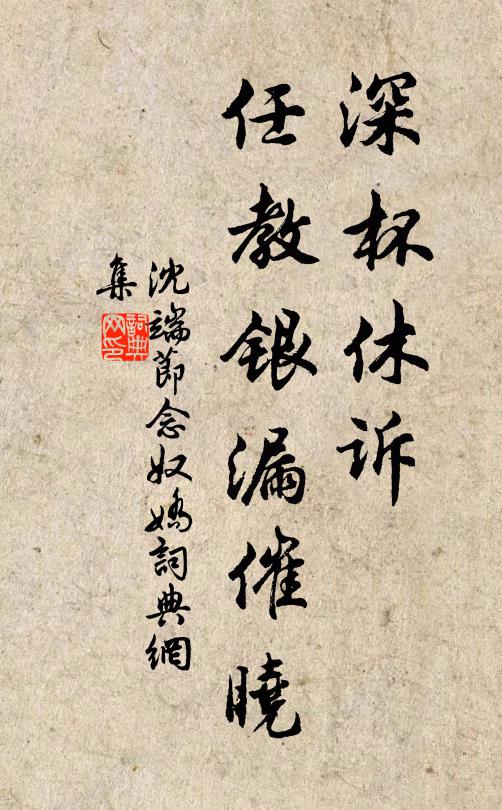 深杯休诉
任教银漏催曉
沈端節念奴嬌詞典網
集
詞典
网印